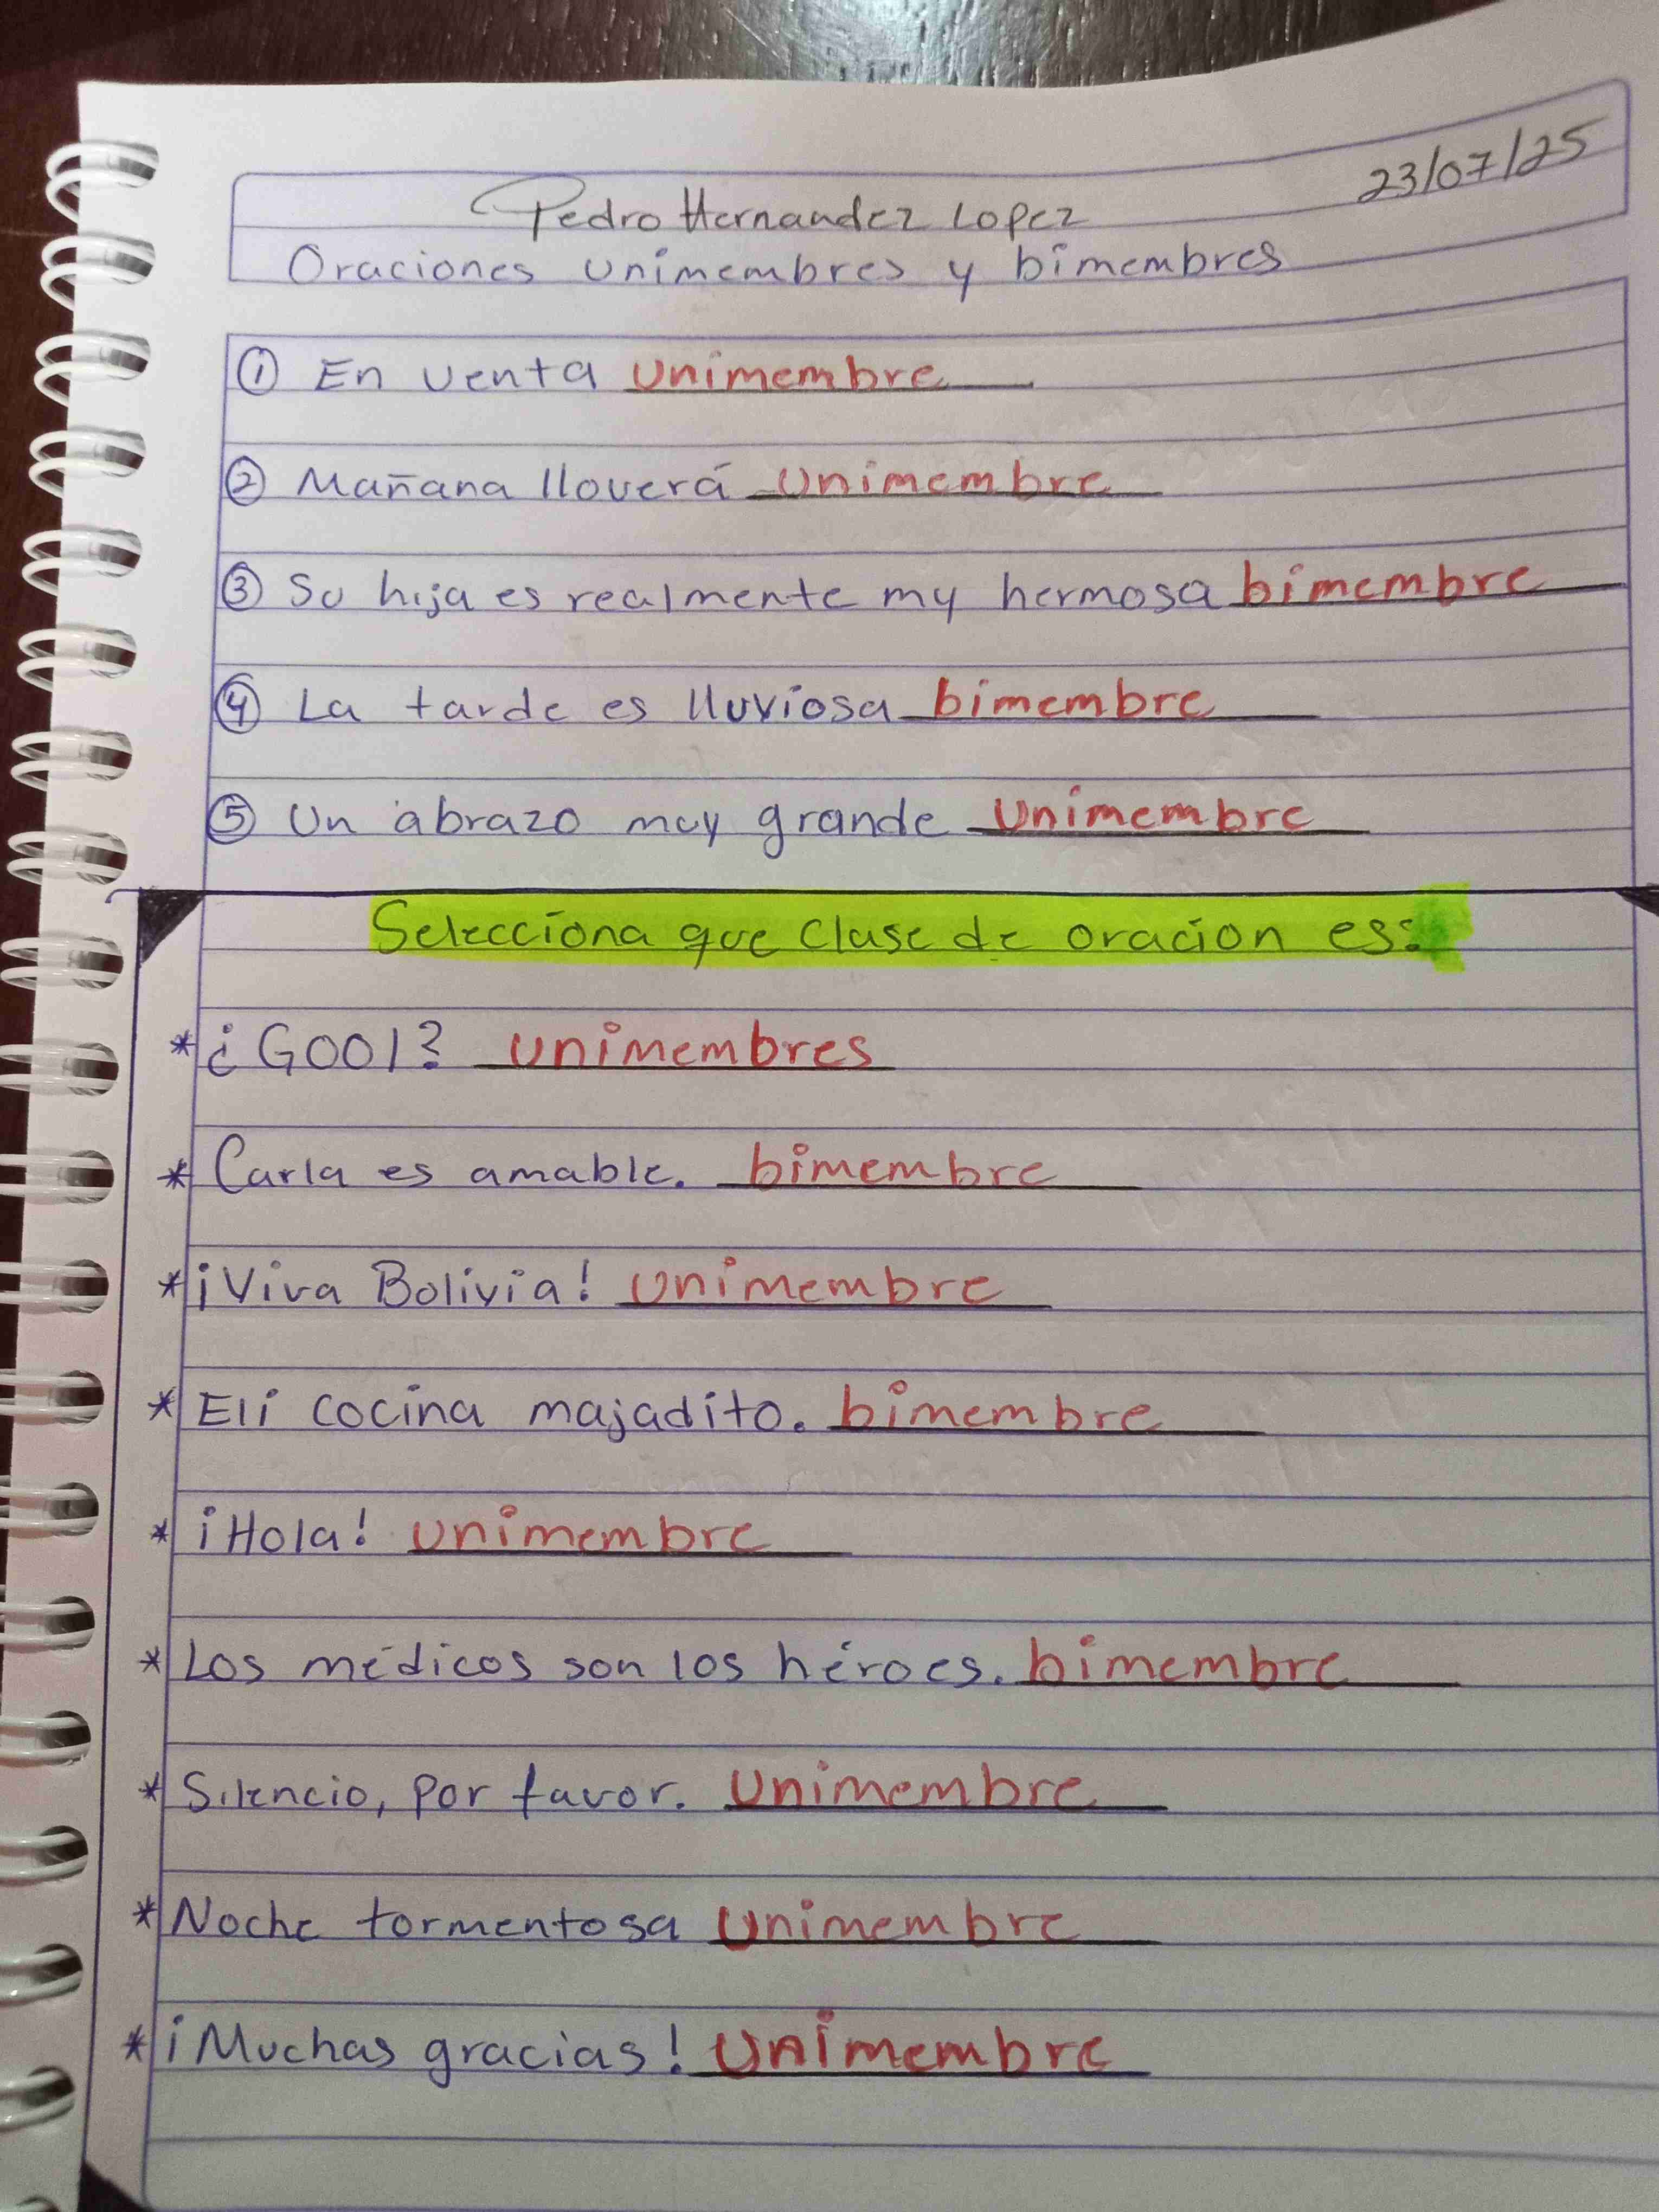 23/07/25
Pedro Hernandez Lopez
Oraciones unimembres y bimembres
① En venta unimembre
② Mañana lloverá unimembre
③ Su hija es realmente my hermosa bimembre
④ La tarde es lluviosa bimembre
⑤ Un abrazo muy grande unimembre
Selecciona que clase de oracion es:
* ¿GOOl? unimembres
* Carla es amable. bimembre
* ¡Viva Bolivia! unimembre
* Eli cocina majadito. bimembre
* ¡Hola! unimembre
* Los médicos son los héroes. bimembre
* Silencio, por favor. unimembre
* Noche tormentosa unimembre
* ¡Muchas gracias! unimembre